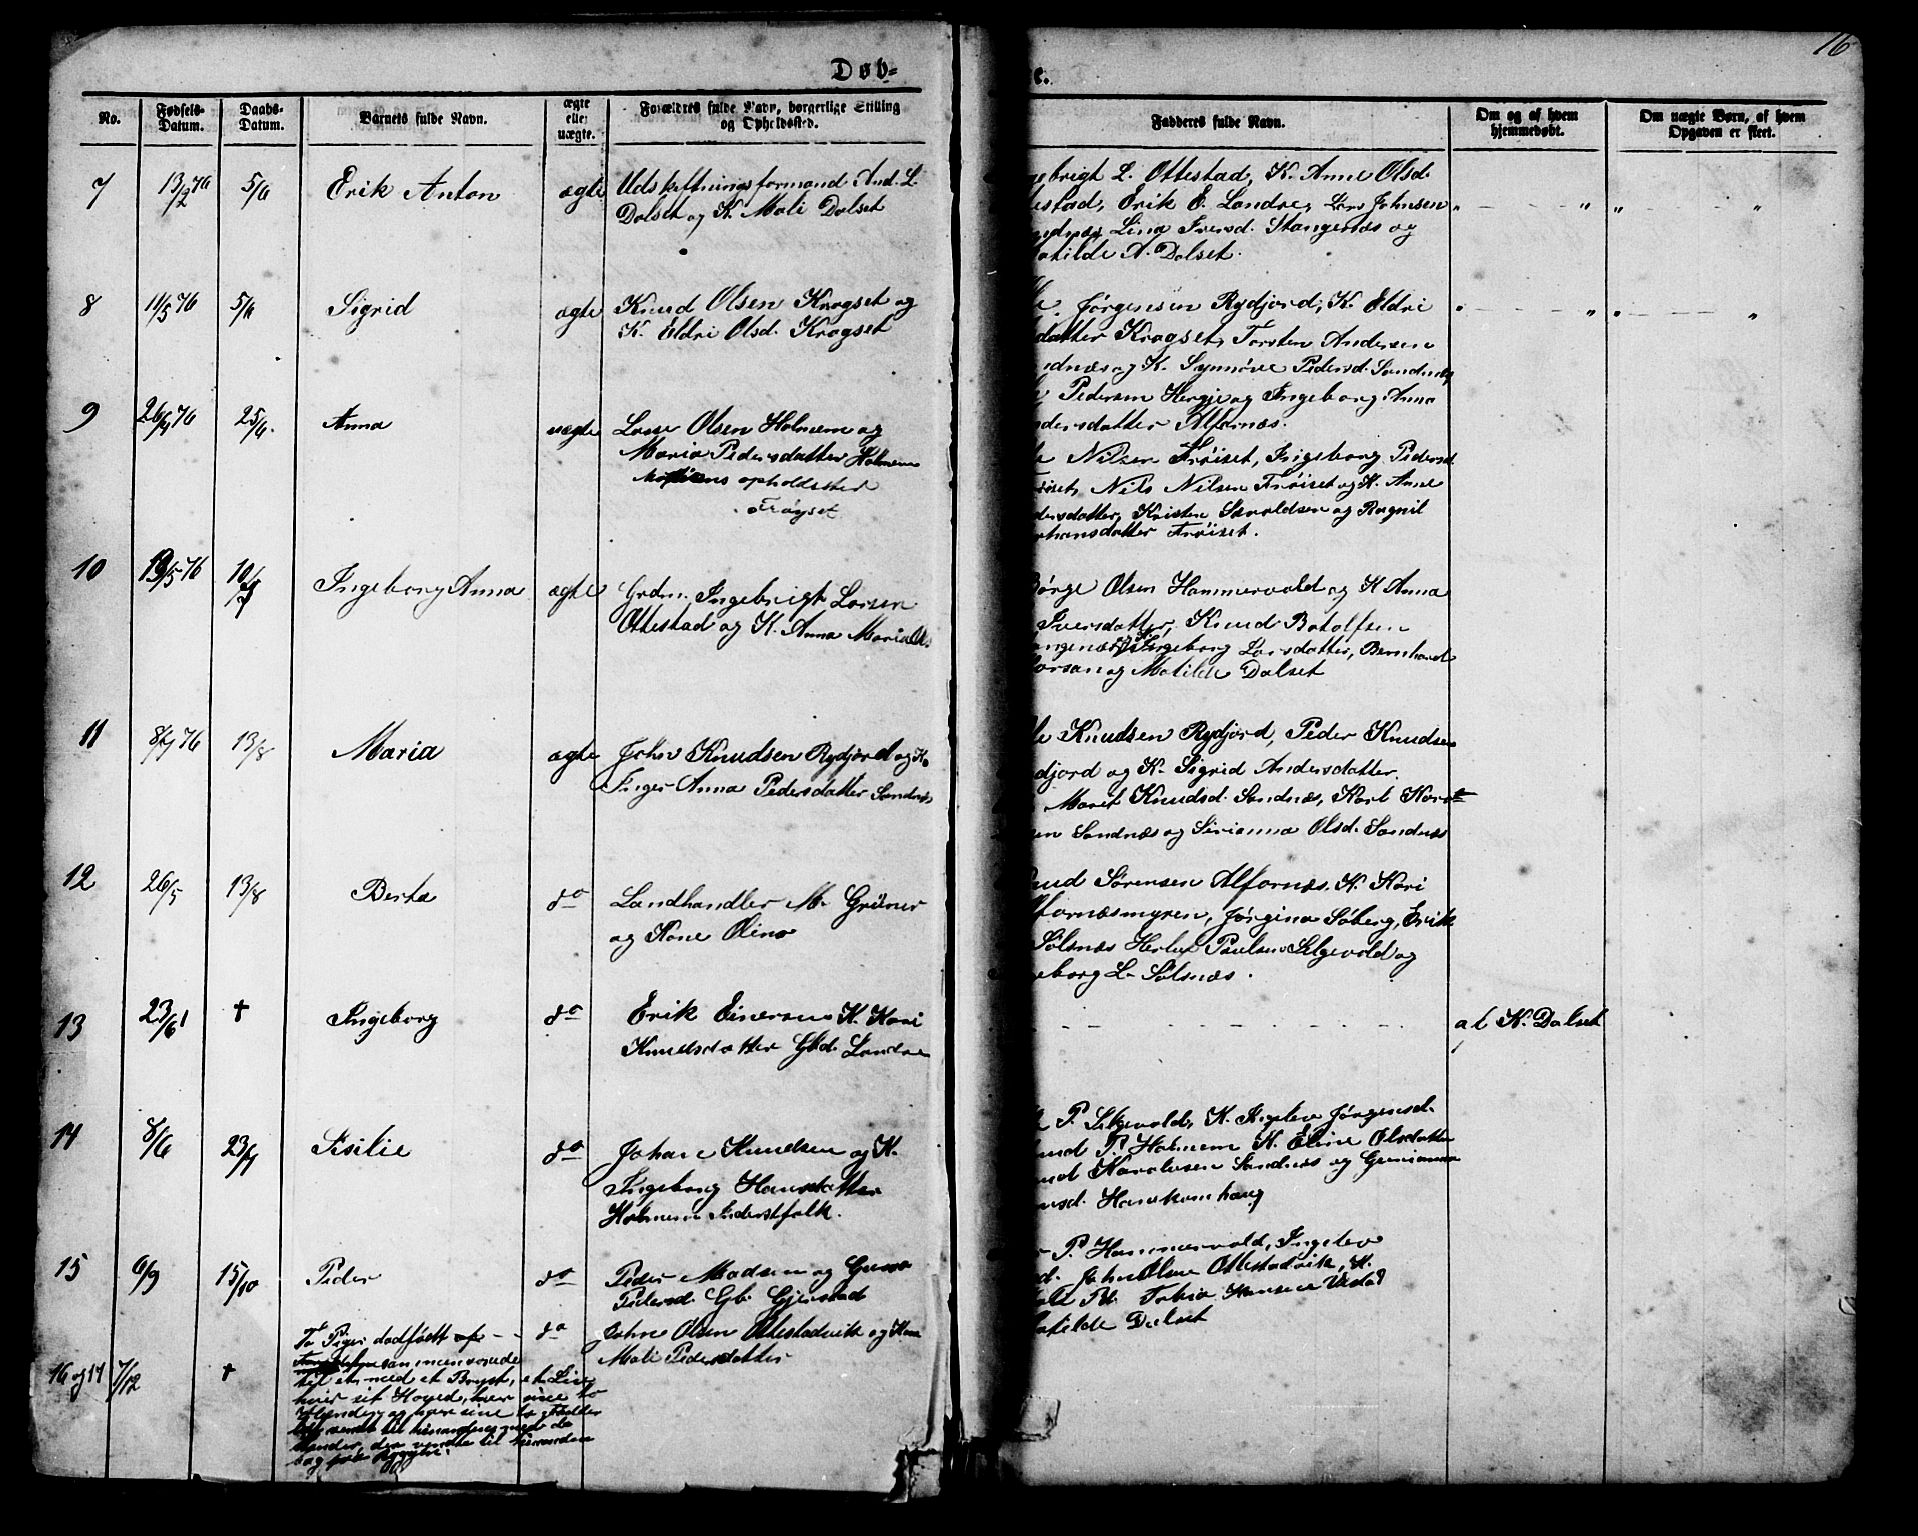 16
Døb=
e.
No.
Fødsels-
Datum.
Daabs-
Datum.
Barnets fulde Navn.
ægte
eller
uægte.
Forældres fulde Navn, borgerlige Stilling
og Opholdssted.
Fadderes fulde Navn.
Om og af hvem
hjemmedøbt.
Om uægte Børn, af hvem
Opgaven er skeet.
7
13/2 76
5/6
Erik Anton
ægte
Udskiftningsformand And. L.
Dalset og K. Mali Dalset
gebrigt L. Ottestad, K. Anne Olsd.
testad, Erik E. Landre, Lars Johnsen
ndnæs Lina Iversd. Stangenæs og
Matilde A. Dalset.
8
11/5 76
5/6
Sigrid
ægte
Knud Olsen Krogset og
K. Eldri Olsd. Krogset
Jørgensen Rydjord, K. Eldri
datter Krogset, Torsten Andersen
ndnæs og K. Synnøve Pedersd. Sandnæs
Pedersen Hergje og Ingeborg Anna
ndersdatter Alfarnæs.
9
26/4 76
25/6.
Anna
uægte
Lasse Olsen Holmem og
Maria Pedersdatter Holmem
opholdssted
Frøyset
Nilsen Frøiset, Ingeborg Pedersd.
øiset, Nils Nilsen Frøiset og K. Anne
dersdatter, Kristen Haraldsen og Ragnil
hansdatter Frøiset.
10
19/5 76
10/7
Ingeborg Anna
ægte
Grdm. Ingebrigt Larsen
Ottestad og K. Anna Maria Ols.
Børge Olsen Hammervold og K Anna
Iversdatter, Knud Botolfsen
angenæs og K. Ingeborg Larsdatter, Bernhard
Larsen og Matilde Dalset
11
8/7 76
13/8
Maria
ægte
John Knudsen Rydjord og K.
Inger Anna Pedersdatter Sandnæs
le Knudsen Rydjord, Peder Knudsen
djord og K. Sigrid Andersdatter.
Marit Knudsd. Sandnæs, Karl Karol
sen Sandnæs og Serianna Olsd. Sandnæs
12
26/5
13/8
Berta
do
Landhandler M. Grüner
og Kone Olina
nud Sørensen Alfarnæs, K. Kari
lfarnæsmyren, Jørgina Søberg, Erik
Sølsnæs Herlof Paulsen Selgevold og
geborg L. Sølsnæs.
13
23/6
†
Ingeborg
do
Erik Einersen K. Kari
Knudsdatter Gbd. Landre
af K. Dalset
14
8/6
23/7
Sisilie
do
Johan Knudsen og K.
Ingeborg Hansdatter
Holmem Inderstfolk.
P. Selgevold, K. Ingelev Jørgensd.
nud P. Holmem K. Eline Olsdatter
nud Karolusen Sandnæs og Gurianna
nsd. Hanekamhaug
15
6/9
15/10
Peder
do
Peder Madsen og Guru
Pedersd. Gb. Gjerstad
P. Hammervold, Ingelev
sd. John Olsen Ottestadvik, K.
Mali Pd. Tobia Hansen Vestad
Matilde Dalset
16 og 17
7/12
†
To Piger dødfødt
sammenvoxede
med et Bryst, et Liv,
hver sit Hoved, hver sine to
Hænder og hver sine to Fødder
vendt til hinanden
Hænder, der vendte til hinanden
bag paa Ryggen.
do
John Olsen Ottestadvik og Kone
Mali Pedersdatter